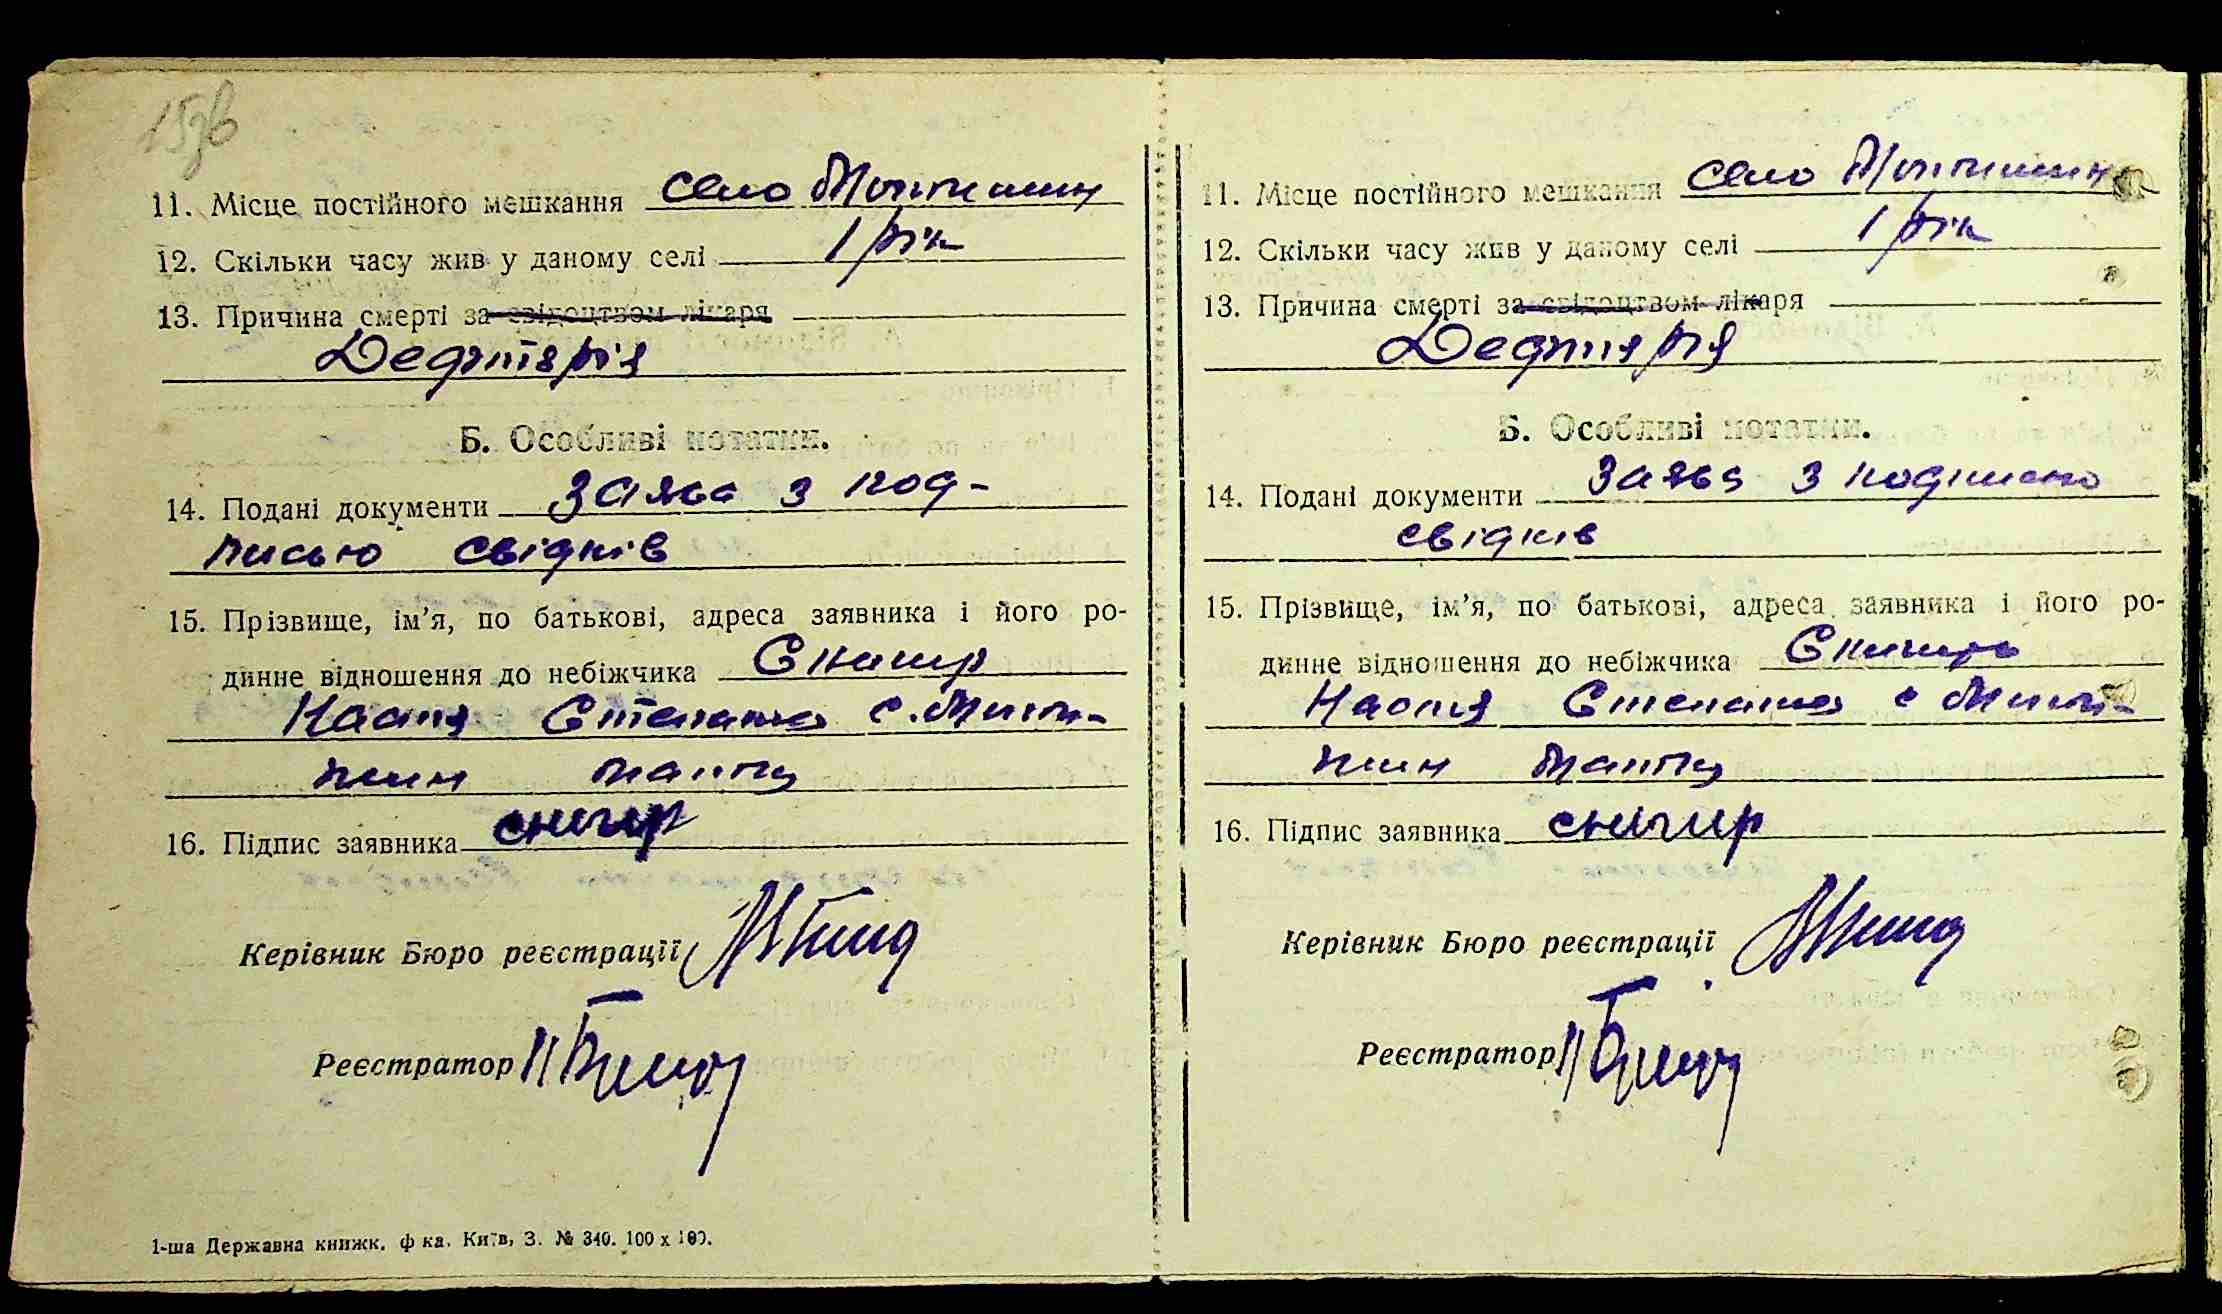 11. Місце постійного мешкання село
12. Скільки часу жив у даному селі 1 рік
13. Причина смерті за свідоцтвом лікаря
Дефтярія
Б. Особливі нотатки.
14. Подані документи Заява з под-
писью свідків
15. Прізвище, ім'я, по батькові, адреса заявника і його ро-
динне відношення до небіжчика Снигир
Настя Степанова с.
мати
16. Підпис заявника снигир
Керівник Бюро реєстрації
Реєстратор
1-ша Державна книжк. ф-ка. Київ, З. № 340. 100 х 100.
11. Місце постійного мешкання село
12. Скільки часу жив у даному селі 1 рік
13. Причина смерті за свідоцтвом лікаря
Дефтярія
Б. Особливі нотатки.
14. Подані документи Заява з подписью
свідків
15. Прізвище, ім'я, по батькові, адреса заявника і його ро-
динне відношення до небіжчика Снигирь
Настя Степанова с
мати
16. Підпис заявника снигир
Керівник Бюро реєстрації
Реєстратор